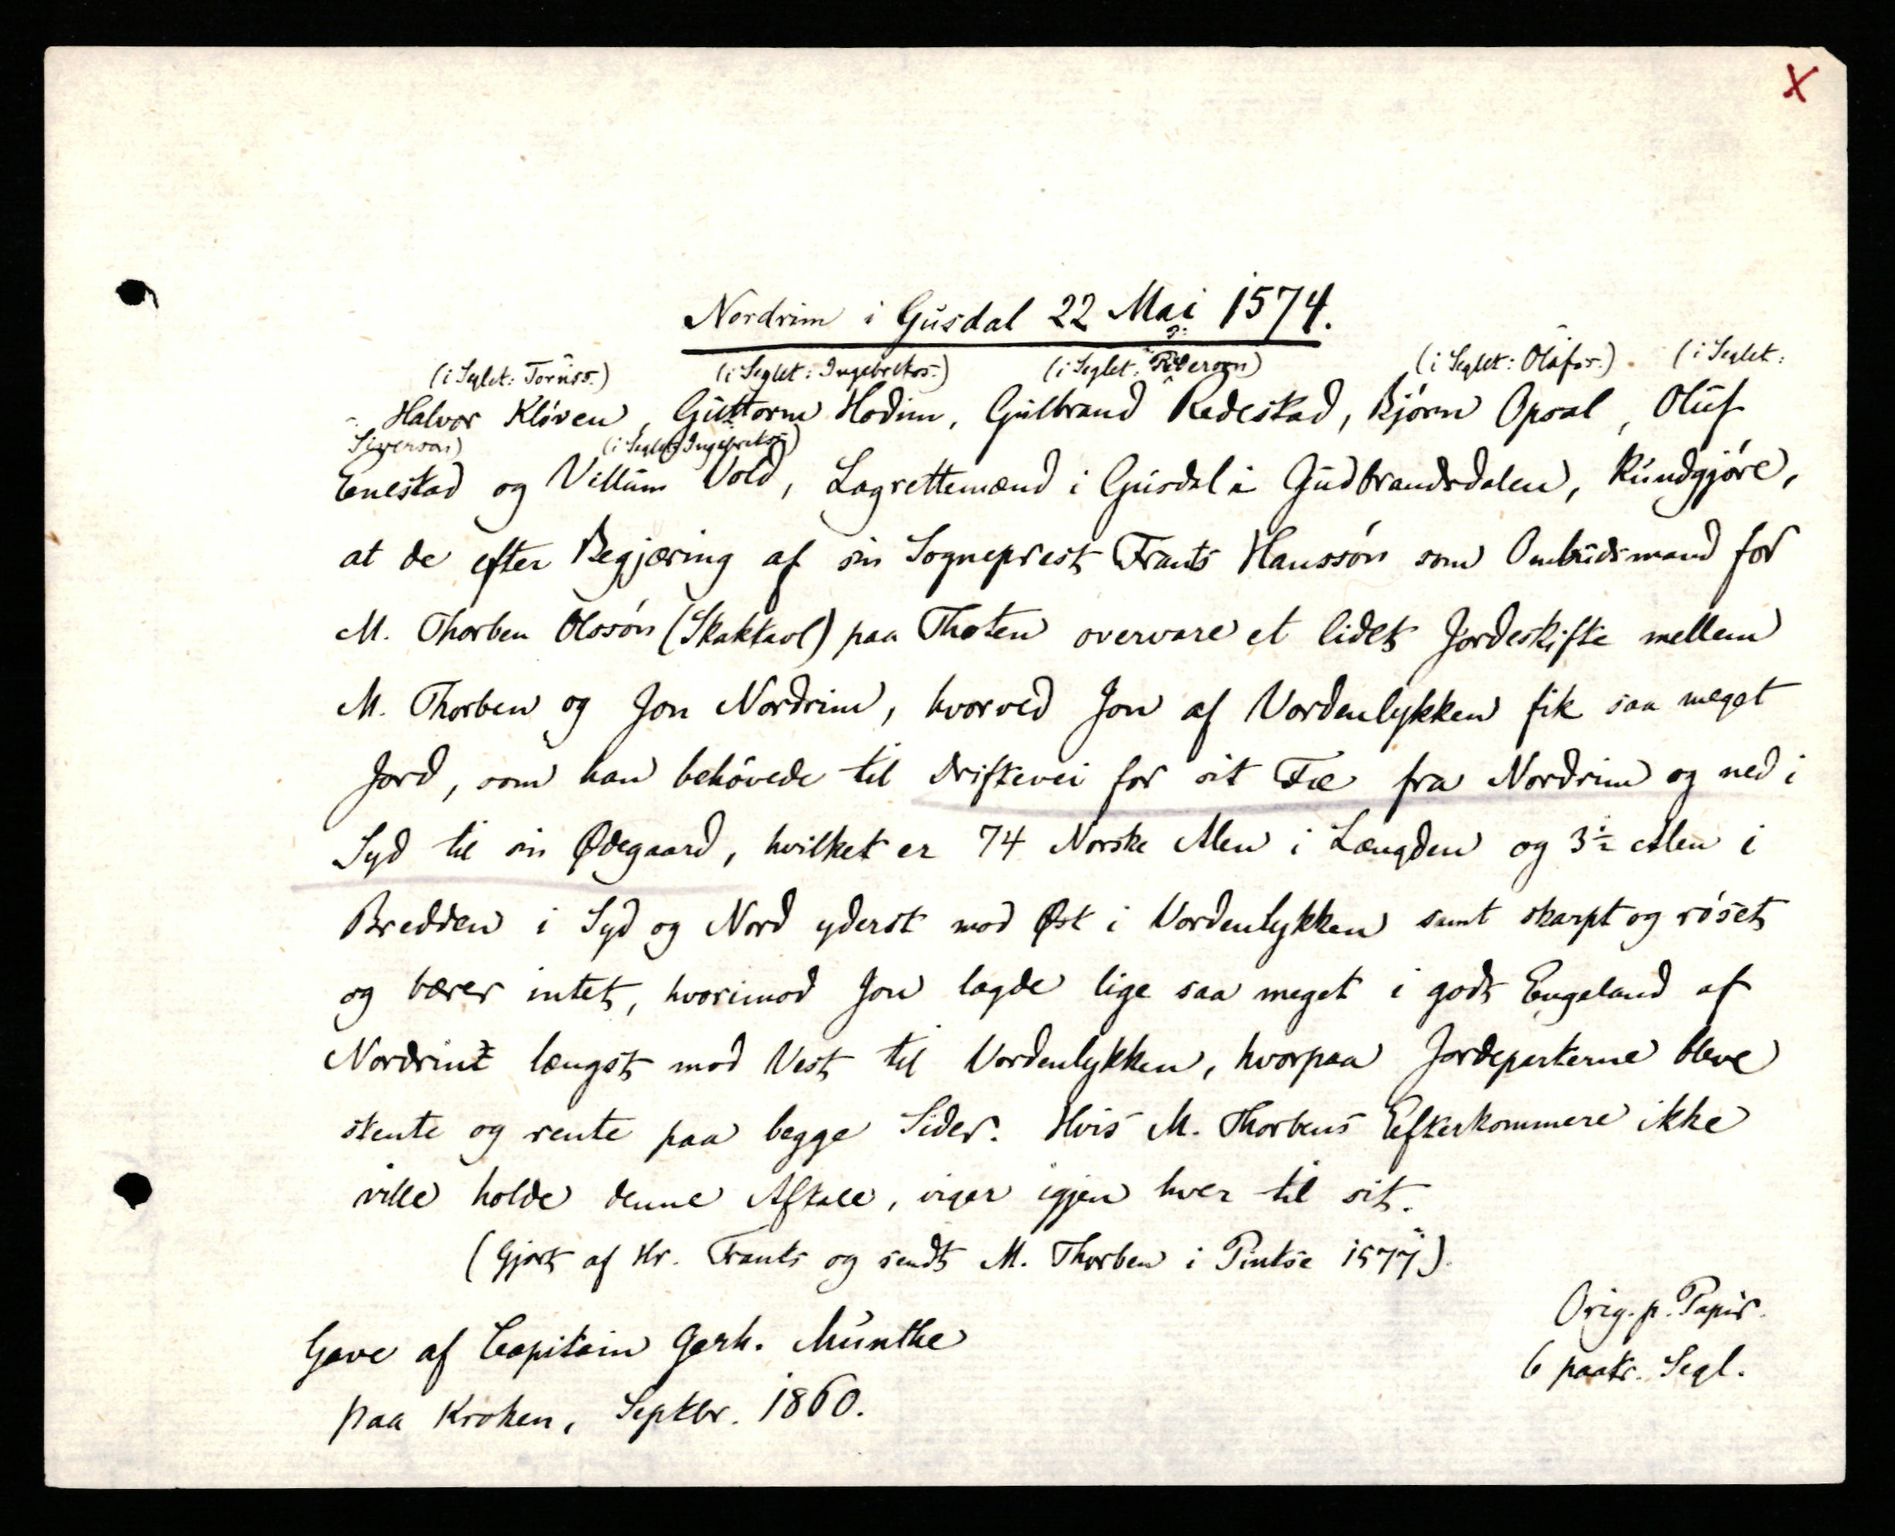 X
Nordrim i Gusdal 22 Mai 1574.
(i Seglet: Toruss.) (i Seglet: Ingebrektss.) (i Seglet: Pederson) (i Seglet: Olafss.) (i Seglet:
Halvor Kløven, Guttorm Hodim, Gulbrand Redestad, Bjørn Opsal, Oluf
Siverson) (i Seglet: Ingebrektss.)
Enestad og Villum Vold, Lagrettemænd i Gusdal i Gudbrandsdalen, kundgjøre,
at de efter Begjæring af sin Sogneprest Frants Hanssøn som Ombudsmand for
M. Thorben Olssøn (Skaktavl) paa Thoten overvare et lidet Jordeskifte mellem
M. Thorben og Jon Nordrim, hvorved Jon af Vordenlykken fik saa meget
Jord, som han behøvede til Driftevei for sit Fæ fra Nordrim og ned i
Syd til sin Ødegaard, hvilket er 74 Norske Alen i Længden og 3½ Alen i
Bredden i Syd og Nord yderst mod Øst i Vordenlykken samt skarpt og røset
og bærer intet, hvorimod Jon lagde lige saa meget i godt Engeland af
Nordrim længst mod Vest til Vordenlykken, hvorpaa Jordeparterne bleve
stente og rente paa begge Sider. Hvis M. Thorbens Efterkommere ikke
ville holde denne Aftale, viger igjen hver til sit.
(Gjort af Hr. Frants og sendt M. Thorben i Pintse 1577).
Orig. p. Papir.
6 paatr. Segl.
Gave af Capitain Gerh. Munthe
paa Kroken, Septbr. 1860.